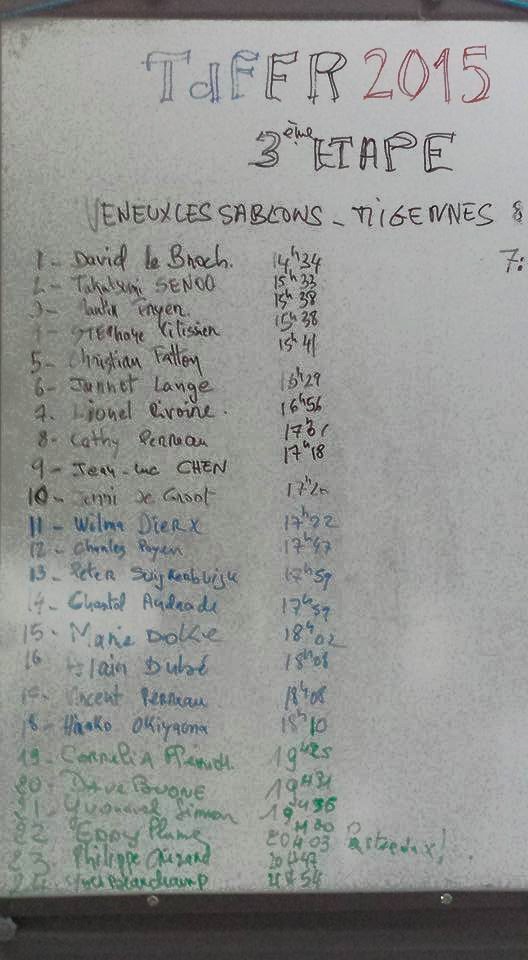 TdFFR 2015
3ème ETAPE
VENEUX LES SABLONS - MIGENNES 8
7:
1- David le Broch. 14h34
2- Takatsugi SENOO 15h33
3- 15h38
4- STEPHANE 15h38
5- Christian Fatton 15h41
6- Jannet Lange 16h29
7. Lionel Rivoire. 16h56
8- Cathy Perreau 17h01
9- Jean-Luc CHEN 17h18
10- Jenni De Groot 17h20
11- Wilma DIERX 17h22
12- Charles Payen 17h47
13- PETER 17h59
14- Chantal Andrade 17h59
15- Marie DOKE 18h02
16 Alain Dubé 18h08
17- Vincent Perreau 18h08
18- Hiroko OKIYAMA 18h10
19- CORNELIA 19H25
20- DAVE BUONE 19H31
21- Simon 19H36
22- EDDY Plume 20H03
23- Philippe 20H47
24- 21H54